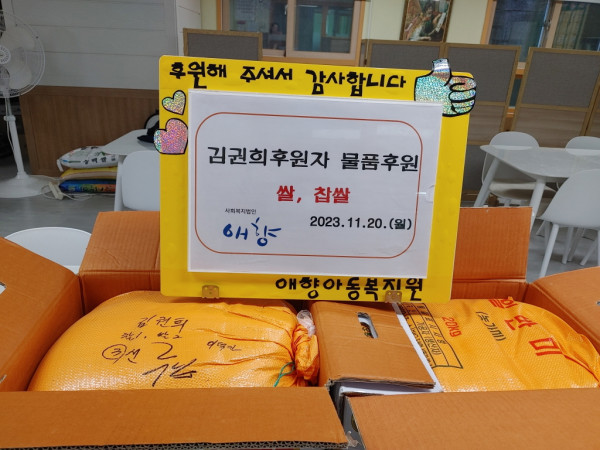 후원해 주셔서 감사합니다
김권희후원자 물품후원
쌀, 찹쌀
사회복지법인
애향
2023.11.20.(월)
애향아동복지원
김권희
20KG